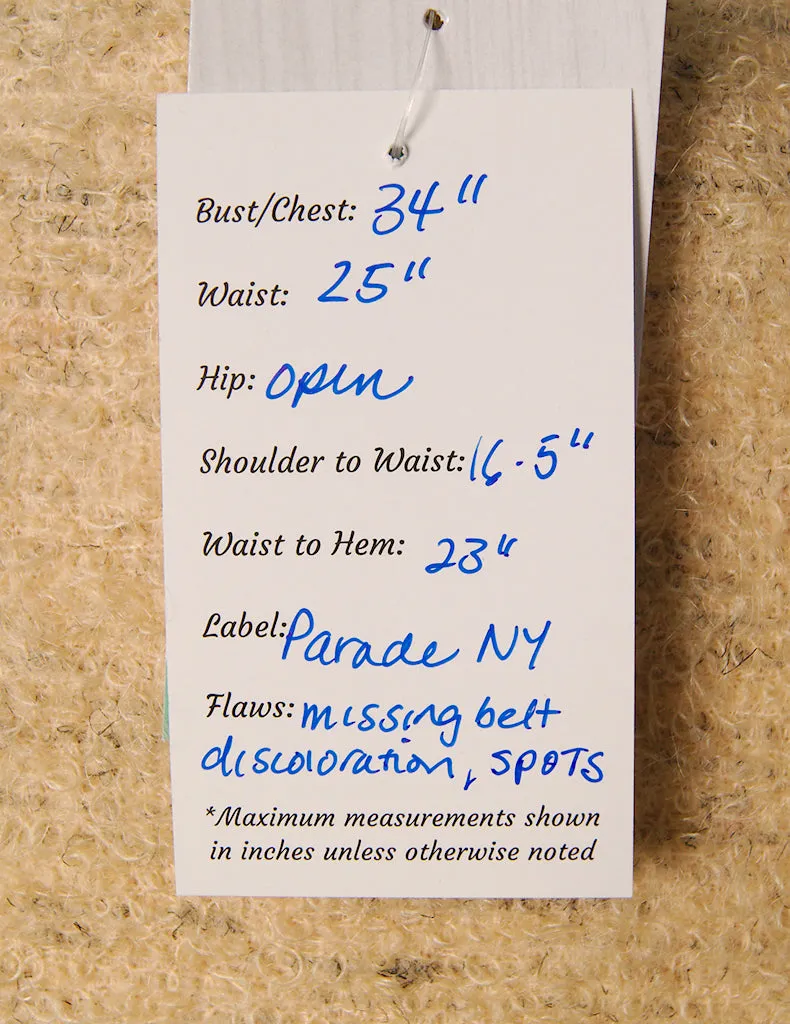 Bust/Chest: 34"
Waist: 25"
Hip: open
Shoulder to Waist: 16.5"
Waist to Hem: 23"
Label: Parade NY
Flaws: missing belt
discoloration, spots
*Maximum measurements shown
in inches unless otherwise noted